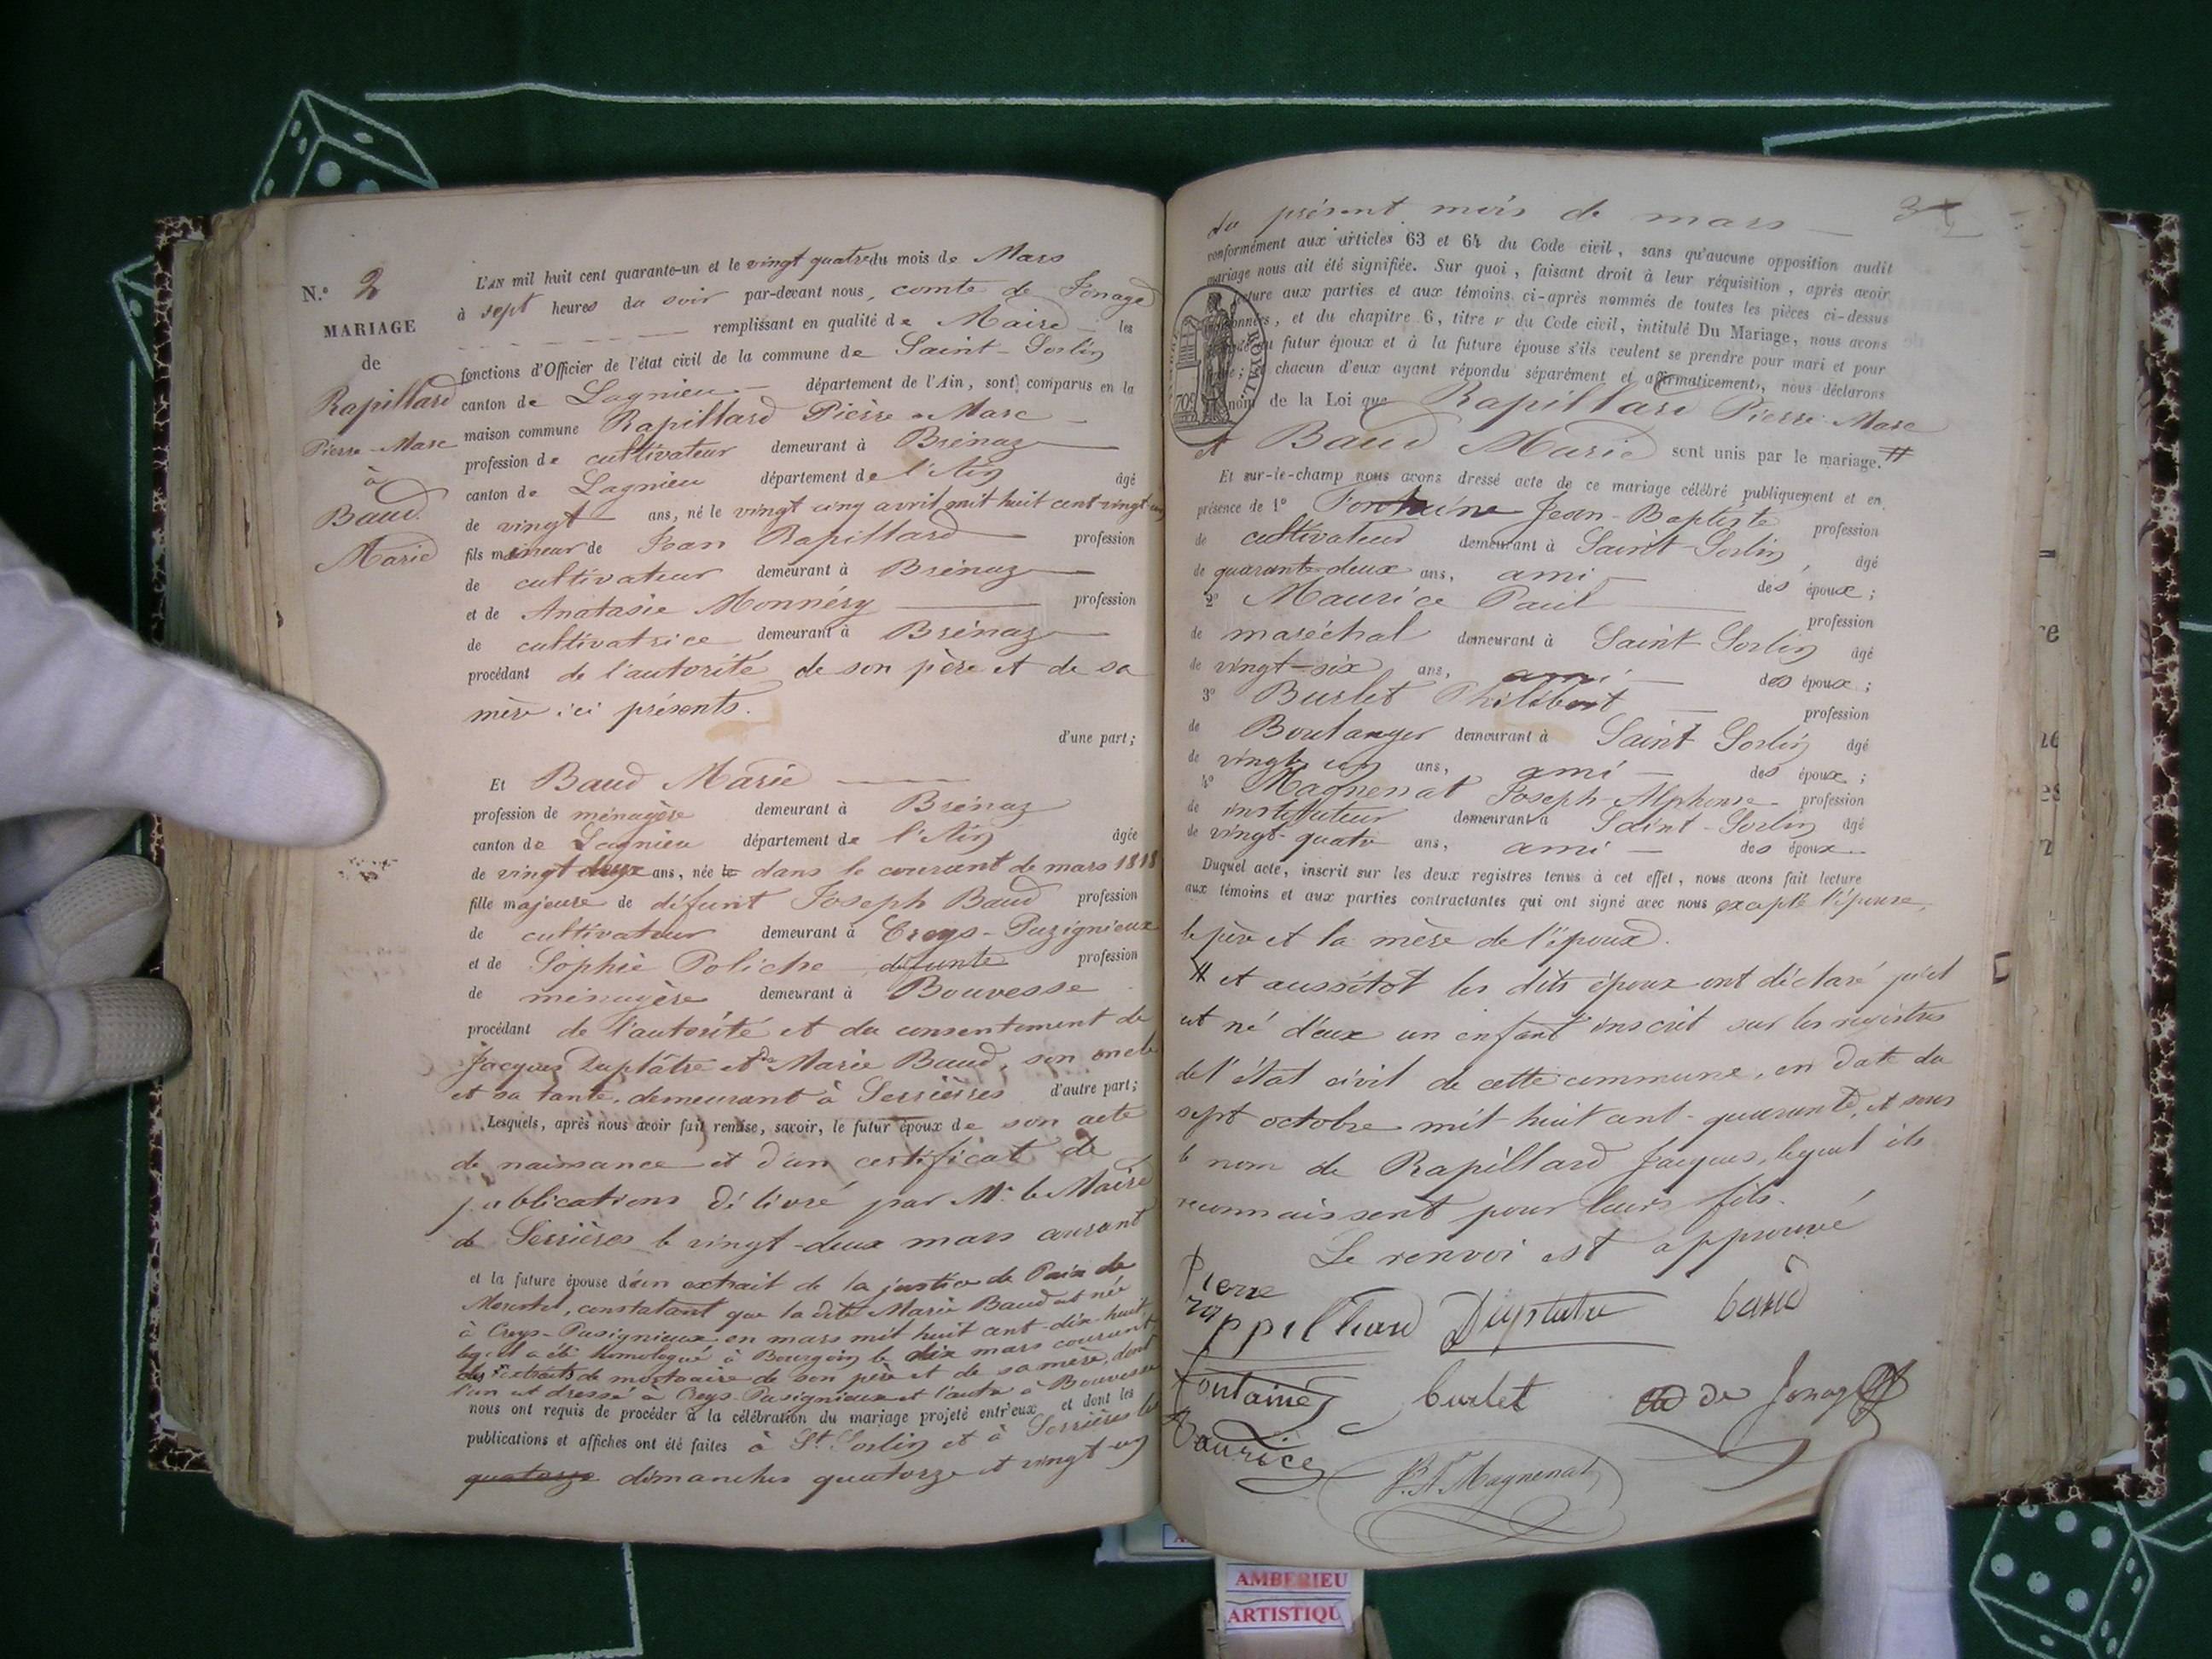 N.o 2
MARIAGE
de
Rapillard
Pierre-Marc
à
Baud
Marie
L'AN mil huit cent quarante-un et le vingt quatre du mois de Mars
à sept heures du soir par-devant nous, comte de Jonage
remplissant en qualité de Maire les
fonctions d'Officier de l'état civil de la commune de Saint-Sorlin
canton de Lagnieu département de l'Ain, sont comparus en la
maison commune Rapillard Pierre-Marc
profession de cultivateur demeurant à Brénaz
canton de Lagnieu département de l'Ain âgé
de vingt ans, né le vingt cinq avril mil huit cent vingt un
fils mineur de Jean Rapillard profession
de cultivateur demeurant à Brénaz
et de Anatasie Monnéry profession
de cultivatrice demeurant à Brénaz
procédant de l'autorité de son père et de sa
mère ici présents.
d'une part;
Et Baud Marie
profession de ménagère demeurant à Brénaz
canton de Lagnieu département de l'Ain âgée
de vingt deux ans, née le dans le courant de mars 1818
fille majeure de défunt Joseph Baud profession
de cultivateur demeurant à Creys-Puzignieux
et de Sophie Poliche défunte profession
de ménagère demeurant à Bouvesse
procédant de l'autorité et du consentement de
Jacques Duplâtre et de Marie Baud, son oncle
et sa tante, demeurant à Serrières d'autre part;
Lesquels, après nous avoir fait remise, savoir, le futur époux de son acte
de naissance et d'un certificat de
publications délivré par Mr. le Maire
de Serrières le vingt-deux mars courant
et la future épouse d'un extrait de la justice de Paix de
Morestel, constatant que la dite Marie Baud est née
à Creys-Pusignieux en mars mil huit cent dix-huit
lequel a été homologué à Bourgoin le dix mars courant
des extraits de mortuaire de son père et de sa mère, dont
l'un est dressé à Creys-Pusignieux et l'autre à Bouvesse
nous ont requis de procéder à la célébration du mariage projeté entr'eux et dont les
publications et affiches ont été faites à St. Sorlin et à Serrières les
quatorze dimanches quatorze et vingt-un
du présent mois de mars
conformément aux articles 63 et 64 du Code civil, sans qu'aucune opposition audit
mariage nous ait été signifiée. Sur quoi, faisant droit à leur réquisition, après avoir
lecture aux parties et aux témoins ci-après nommés de toutes les pièces ci-dessus
et du chapitre 6, titre v du Code civil, intitulé Du Mariage, nous avons
au futur époux et à la future épouse s'ils veulent se prendre pour mari et pour
chacun d'eux ayant répondu séparément et affirmativement, nous déclarons
nom de la Loi que Rapillard Pierre-Marc
et Baud Marie sont unis par le mariage. #
Et sur-le-champ nous avons dressé acte de ce mariage célébré publiquement et en
présence de 1° Fontaine Jean-Baptiste profession
de cultivateur demeurant à Saint-Sorlin, âgé
de quarante-deux ans, ami des époux;
2° Maurice Paul profession
de maréchal demeurant à Saint Sorlin âgé
de vingt-six ans, ami des époux;
3° Burlet Philibert profession
de Boulanger demeurant à Saint Sorlin âgé
de vingt cinq ans, ami des époux;
4° Magnenat Joseph-Alphonse profession
de instituteur demeurant à Saint-Sorlin âgé
de vingt-quatre ans, ami des époux
Duquel acte, inscrit sur les deux registres tenus à cet effet, nous avons fait lecture
aux témoins et aux parties contractantes qui ont signé avec nous excepté l'épouse,
le père et la mère de l'époux.
# et aussitôt les dits époux ont déclaré qu'il
est né d'eux un enfant inscrit sur les registres
de l'état civil de cette commune, en date du
sept octobre mil huit cent-quarante, et sous
le nom de Rapillard Jacques, lequel ils
reconnaissent pour leur fils.
Le renvoi est approuvé
Pierre
rappilliard Duplatre baud
fontaine burlet de Jonage
Maurice J. A. Magnenat
AMBERIEU
ARTISTIQU